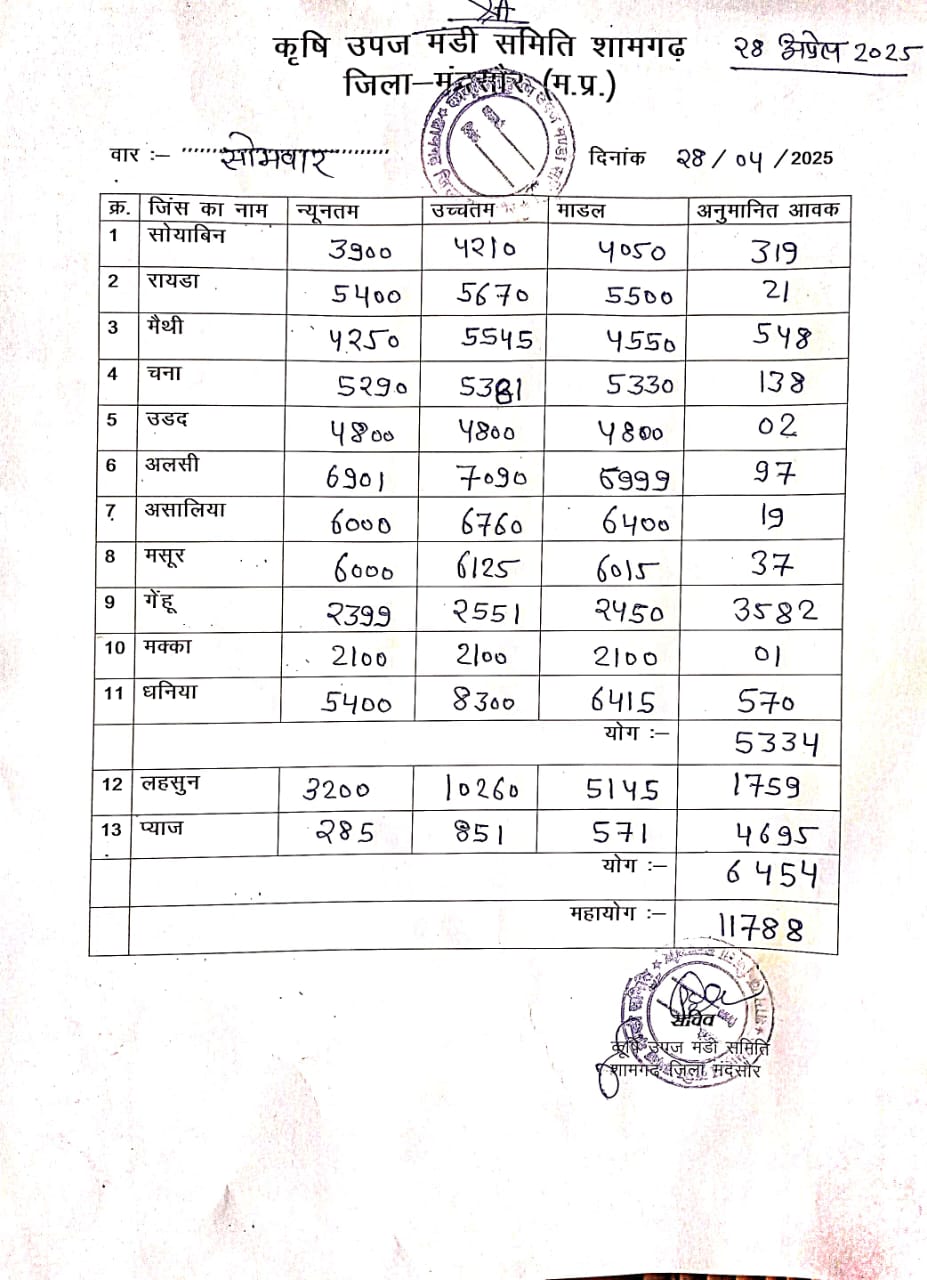 श्री
कृषि उपज मंडी समिति शामगढ़ २८ अप्रेल 2025
जिला–मंदसौर (म.प्र.)
वार :– सोमवार दिनांक २८/०४/2025
क्र. जिंस का नाम न्यूनतम उच्चतम माडल अनुमानित आवक
1 सोयाबिन 3900 ५२10 ५०50 319
2 रायडा 5400 5670 5500 21
3 मैथी ५250 5545 ५550 548
4 चना 5290 5381 5330 138
5 उडद ५800 ५800 ५800 02
6 अलसी 6901 7090 6999 97
7 असालिया 6000 6760 6400 19
8 मसूर 6000 6125 6015 37
9 गेंहू २399 २551 २450 3582
10 मक्का 2100 2100 2100 01
11 धनिया 5400 8300 6415 570
योग :– 5334
12 लहसुन 3200 10260 5145 1759
13 प्याज २85 851 571 4695
योग :– 6454
महायोग :– 11788
सचिव
कृषि उपज मंडी समिति
शामगढ जिला मंदसौर